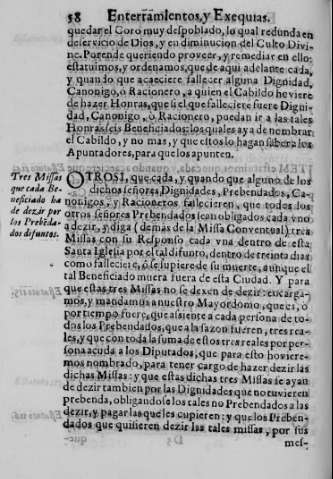 58 Enterramientos, y Exequias.
quedar el Coro muy despoblado, lo qual redunda en
deservicio de Dios, y en diminucion del Culto Divi-
ne. Porende queriendo proveer, y remediar en ello:
estatuimos, y ordenamos, que de aqui adelante cada,
y quando que acaeciere fallecer alguna Dignidad,
Canonigo, ò Racionero, a quien el Cabildo hoviere
de hazer Honras, que si el que falleciere fuere Digni-
dad, Canonigo, ò Racionero, puedan ir a las tales
Honras seis Beneficiados: los quales aya de nombrar
el Cabildo, y no mas, y que estos lo hagan saber a los
Apuntadores, para que los apunten.
Tres Missas
que cada Be-
neficiado ha
de dezir por
los Prebēda-
dos difuntos.
OTROSI, que cada, y quando que alguno de los
dichos señores Dignidades, Prebendados, Ca-
nonigos, y Racioneros fallecieren, que todos los
otros señores Prebendados sean obligados cada vno
a dezir, y diga (demas de la Missa Conventual) tres
Missas con su Responso cada vna dentro de esta
Santa Iglesia por el tal difunto, dentro de treinta dias
como falleciere, ò se supiere de su muerte, aunque el
tal Beneficiado muera fuera de esta Ciudad. Y para
que estas tres Missas no se dexen de dezir: encarga-
mos, y mandamos a nuestro Mayordomo, que es, ò
por tiempo fuere, que assiente a cada persona de to-
dos los Prebendados, que a la sazon fueren, tres rea-
les, y que con toda la suma de estos tres reales por per-
sona acuda a los Diputados, que para esto hoviere-
mos nombrado, para tener cargo de hazer dezir las
dichas Missas: y que estas dichas tres Missas se ayan
de dezir tambien por las Dignidades que no tuvieren
prebenda, obligandose los tales no Prebendados a las
dezir, y pagar las que les cupieren: y que los Preben-
dados que quisieren dezir las tales missas, por sus
mes-